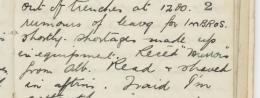 out of trenches at 1230. 2
rumours of leavg for IMBROS.
shortly. shortages made up
in equipment. Recet "Mirror"
from Alb. Read & shaved
in aftrn. Fraid I'm